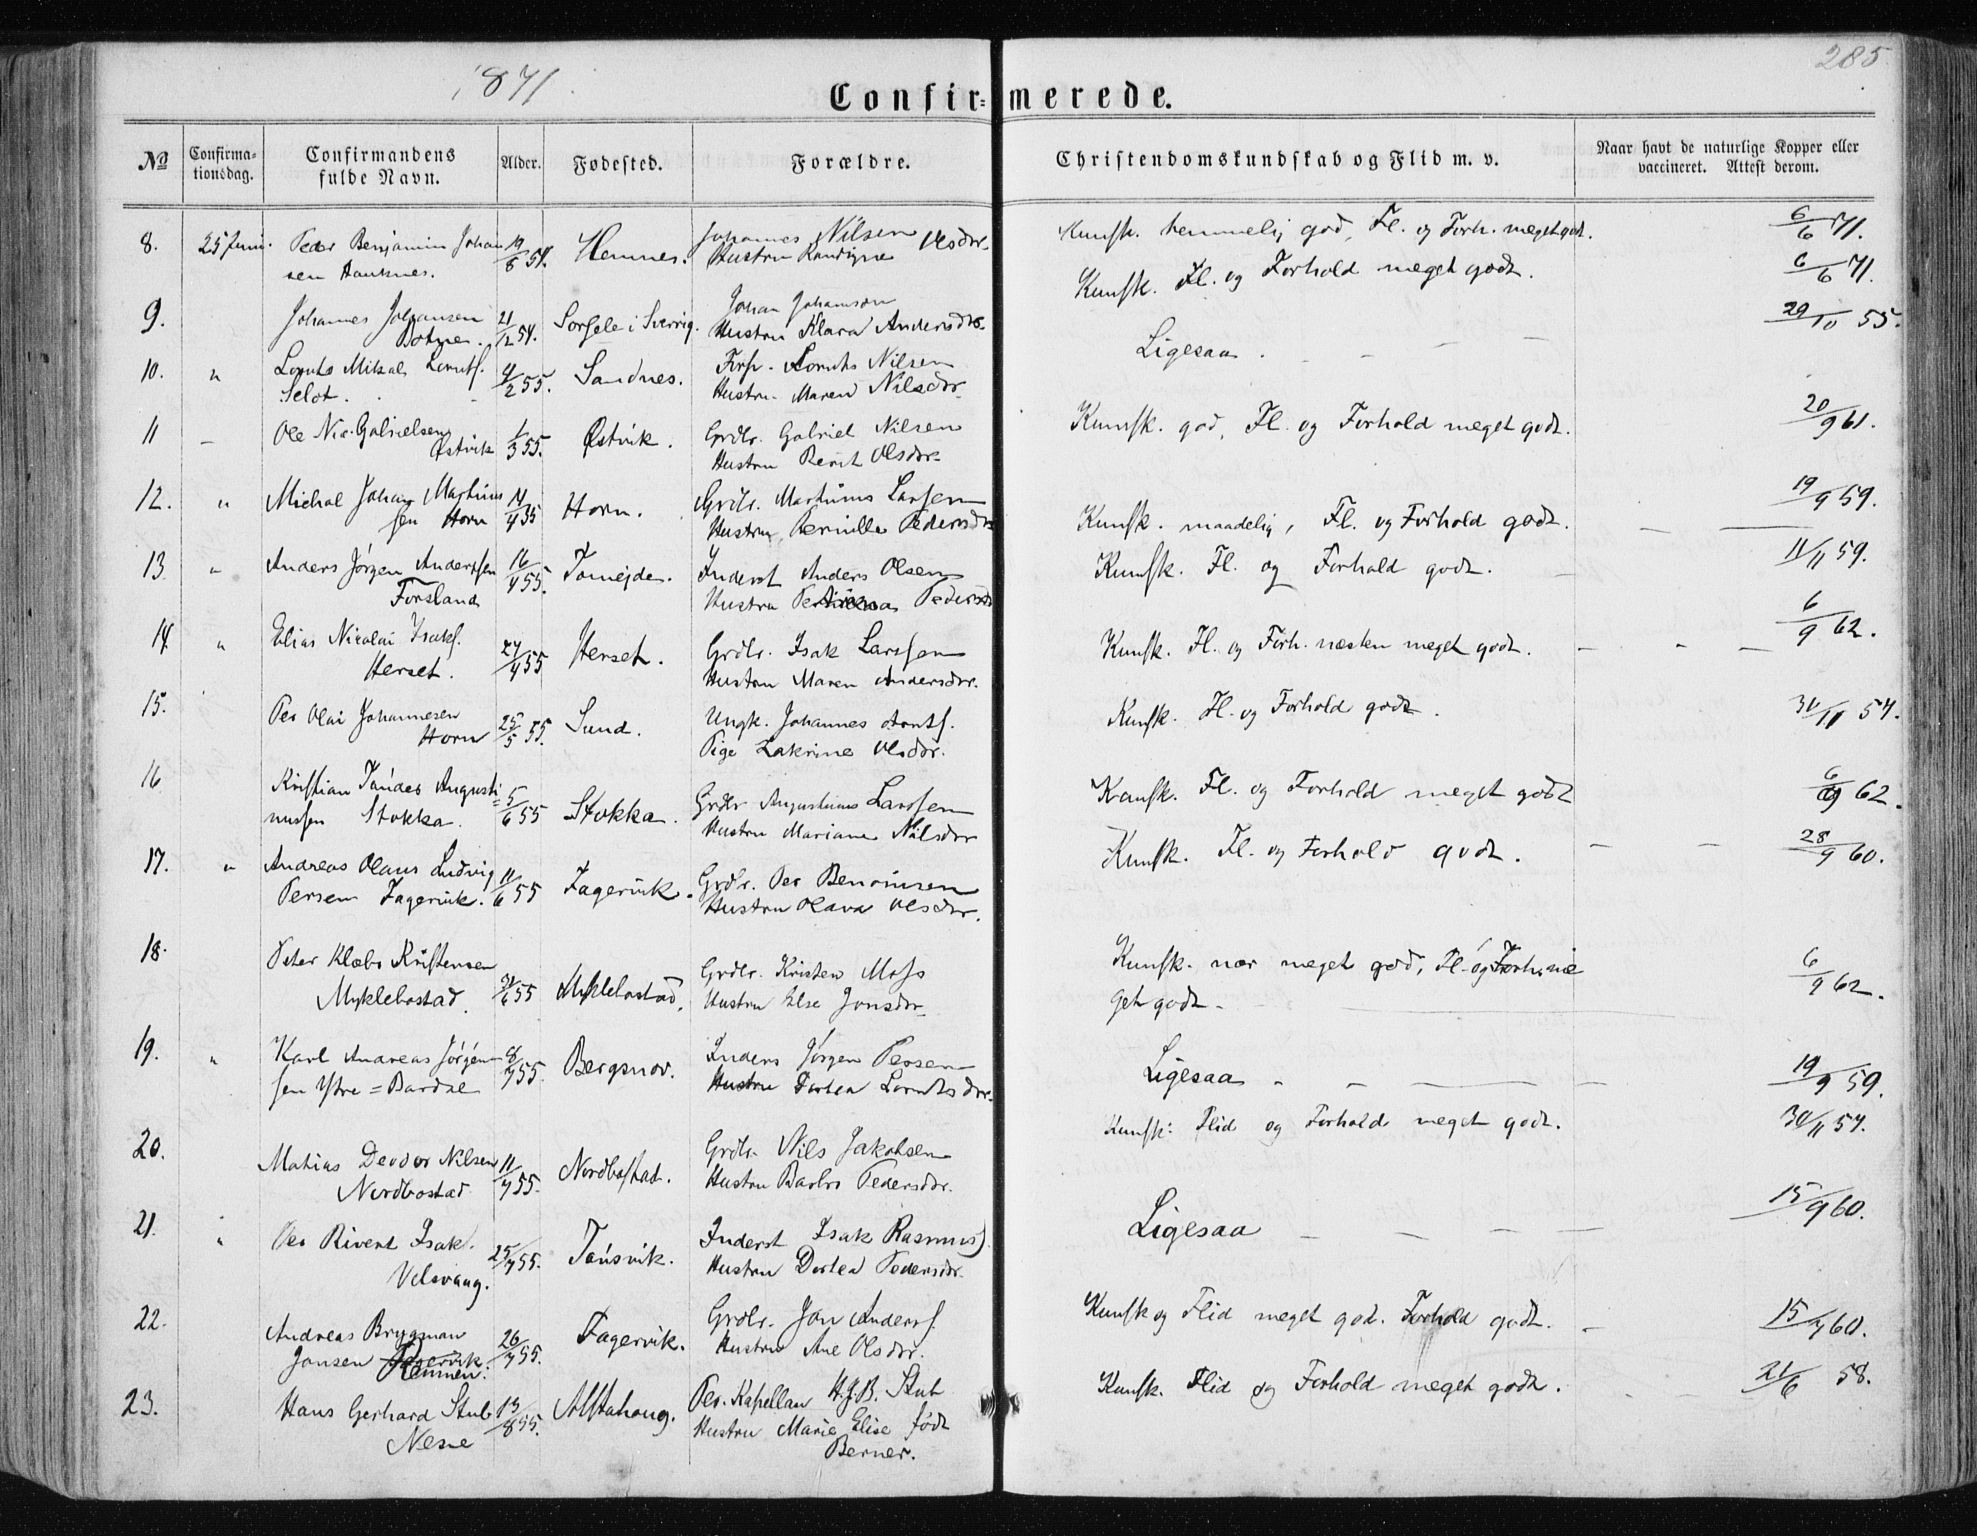 1871
285
Confir=merede.
No
Confirma-
tionsdag.
Confirmandens
fulde Navn.
Alder.
Fødested.
Forældre.
Christendomskundskab og Flid m. v.
Naar havt de naturlige Kopper eller
vaccineret. Attest derom.
8. 25 Juni. Peder Benjamin Johan 19/8 54. Hemnes. Johannes Nilsen Kunsk. temmelig god, Fl. og Forh. meget godt. 6/6 71.
sen Hauknes. Hustru Olsdr.
9. Johannes Johansen 21/12 54. Sorsele i Sverrig. Johan Johanson Kunsk. Fl. og Forhold meget godt. 6/6 71.
Hustru Klara Andersdr.
10. " Lornts Mikal Lornts. 4/2 55. Sandnes. Forp. Lornts Nilsen Ligesaa. - - - - 29/10 55.
Selot. Hustru Maren Nilsdr.
11 - Ole Nic. Gabrielsen 1/3 55. Østvik. Grdbr. Gabriel Nilsen Kunsk. god, Fl. og Forhold meget godt. 20/9 61.
Østvik Hustru Berit Olsdr.
12. " Michal Johan Martinus 14/4 55 Horn. Grdbr. Martinus Larssen Kunsk. maadelig, Fl. og Forhold godt. - 19/9 59.
sen Horn Hustru Pernille Pedersdr
13. " Anders Jörgen Anderssen 16/4 55. Tomejde. Inderst Anders Olsen Kunsk. Fl. og Forhold godt. - 11/11 59.
Forsland Hustru Pedersdr
14. " Elias Nicolai Isaks. 24/4 55 Herset. Grdbr. Isak Larssen Kunsk. Fl. og Forh. næsten meget godt. - - - 6/9 62.
Herset. Hustru Maren Andersdr.
15. Per Olai Johannesen 25/5 55. Sund. Ungk. Johannes Arnts. Kunsk. Fl. og Forhold godt. 30/11 57.
Horn Pige Olsdr.
16 Kristian Tønder Augusti= 5/6 55 Stokka. Grdbr Augustinus Larssen Kunsk. Fl. og Forhold meget godt 6/9 62.
nussen Stokka. Hustru Mariane Nilsdr
17. " Andreas Olaus Ludvig 11/6 55 Fagervik. Grdbr. Per Benonisen Kunsk. Fl. og Forhold godt. - - 28/9 60.
Persen Fagervik. Hustru Olava Olsdr.
18. Peter Klæbo Kristensen Grdbr. Kristen Moss Kunsk. nær meget god, Fl. og Forh. me
Myklebostad. 6 55 Myklebostad. Hustru Else Jonsdr. get godt. 6/9 62.
19. " Karl Andreas Jørgen 8/7 55. Bergsnov. Inders Jørgen Persen Ligesaa - - - - 19/9 59.
sen Ytre = Bardal Hustru Dortea Lorntsdr.
20. Matias Deodor Nilsen 11/7 55. Nordbostad. Grdbr. Nils Jakobsen Kunsk. Flid og Forhold meget godt. 30/11 57.
Nordbostad Hustru Barbro Pedersdr.
21. " Per Rivert Isak. 25/7 55. Tønsvik. Inderst Isak Rasmus. Ligesaa - - - - 15/9 60.
Velsvaag. Hustru Dortea Pedersdr.
22. Andreas Brygman 26/7 55. Fagervik. Grdbr. Jon Anders. Kunsk og Flid meget god. Forhold godt. - 15/7 60.
Jonsen Fagervik Remnen. Hustru Ane Olsdr.
23. Hans Gerhard Stub 13/8 55. Alstahaug. Per. Kapellan H.J.B. Stub Kunsk. Flid og Forhold meget godt. 21/6 58.
Nesne Hustru Marie Elise født
Berner.